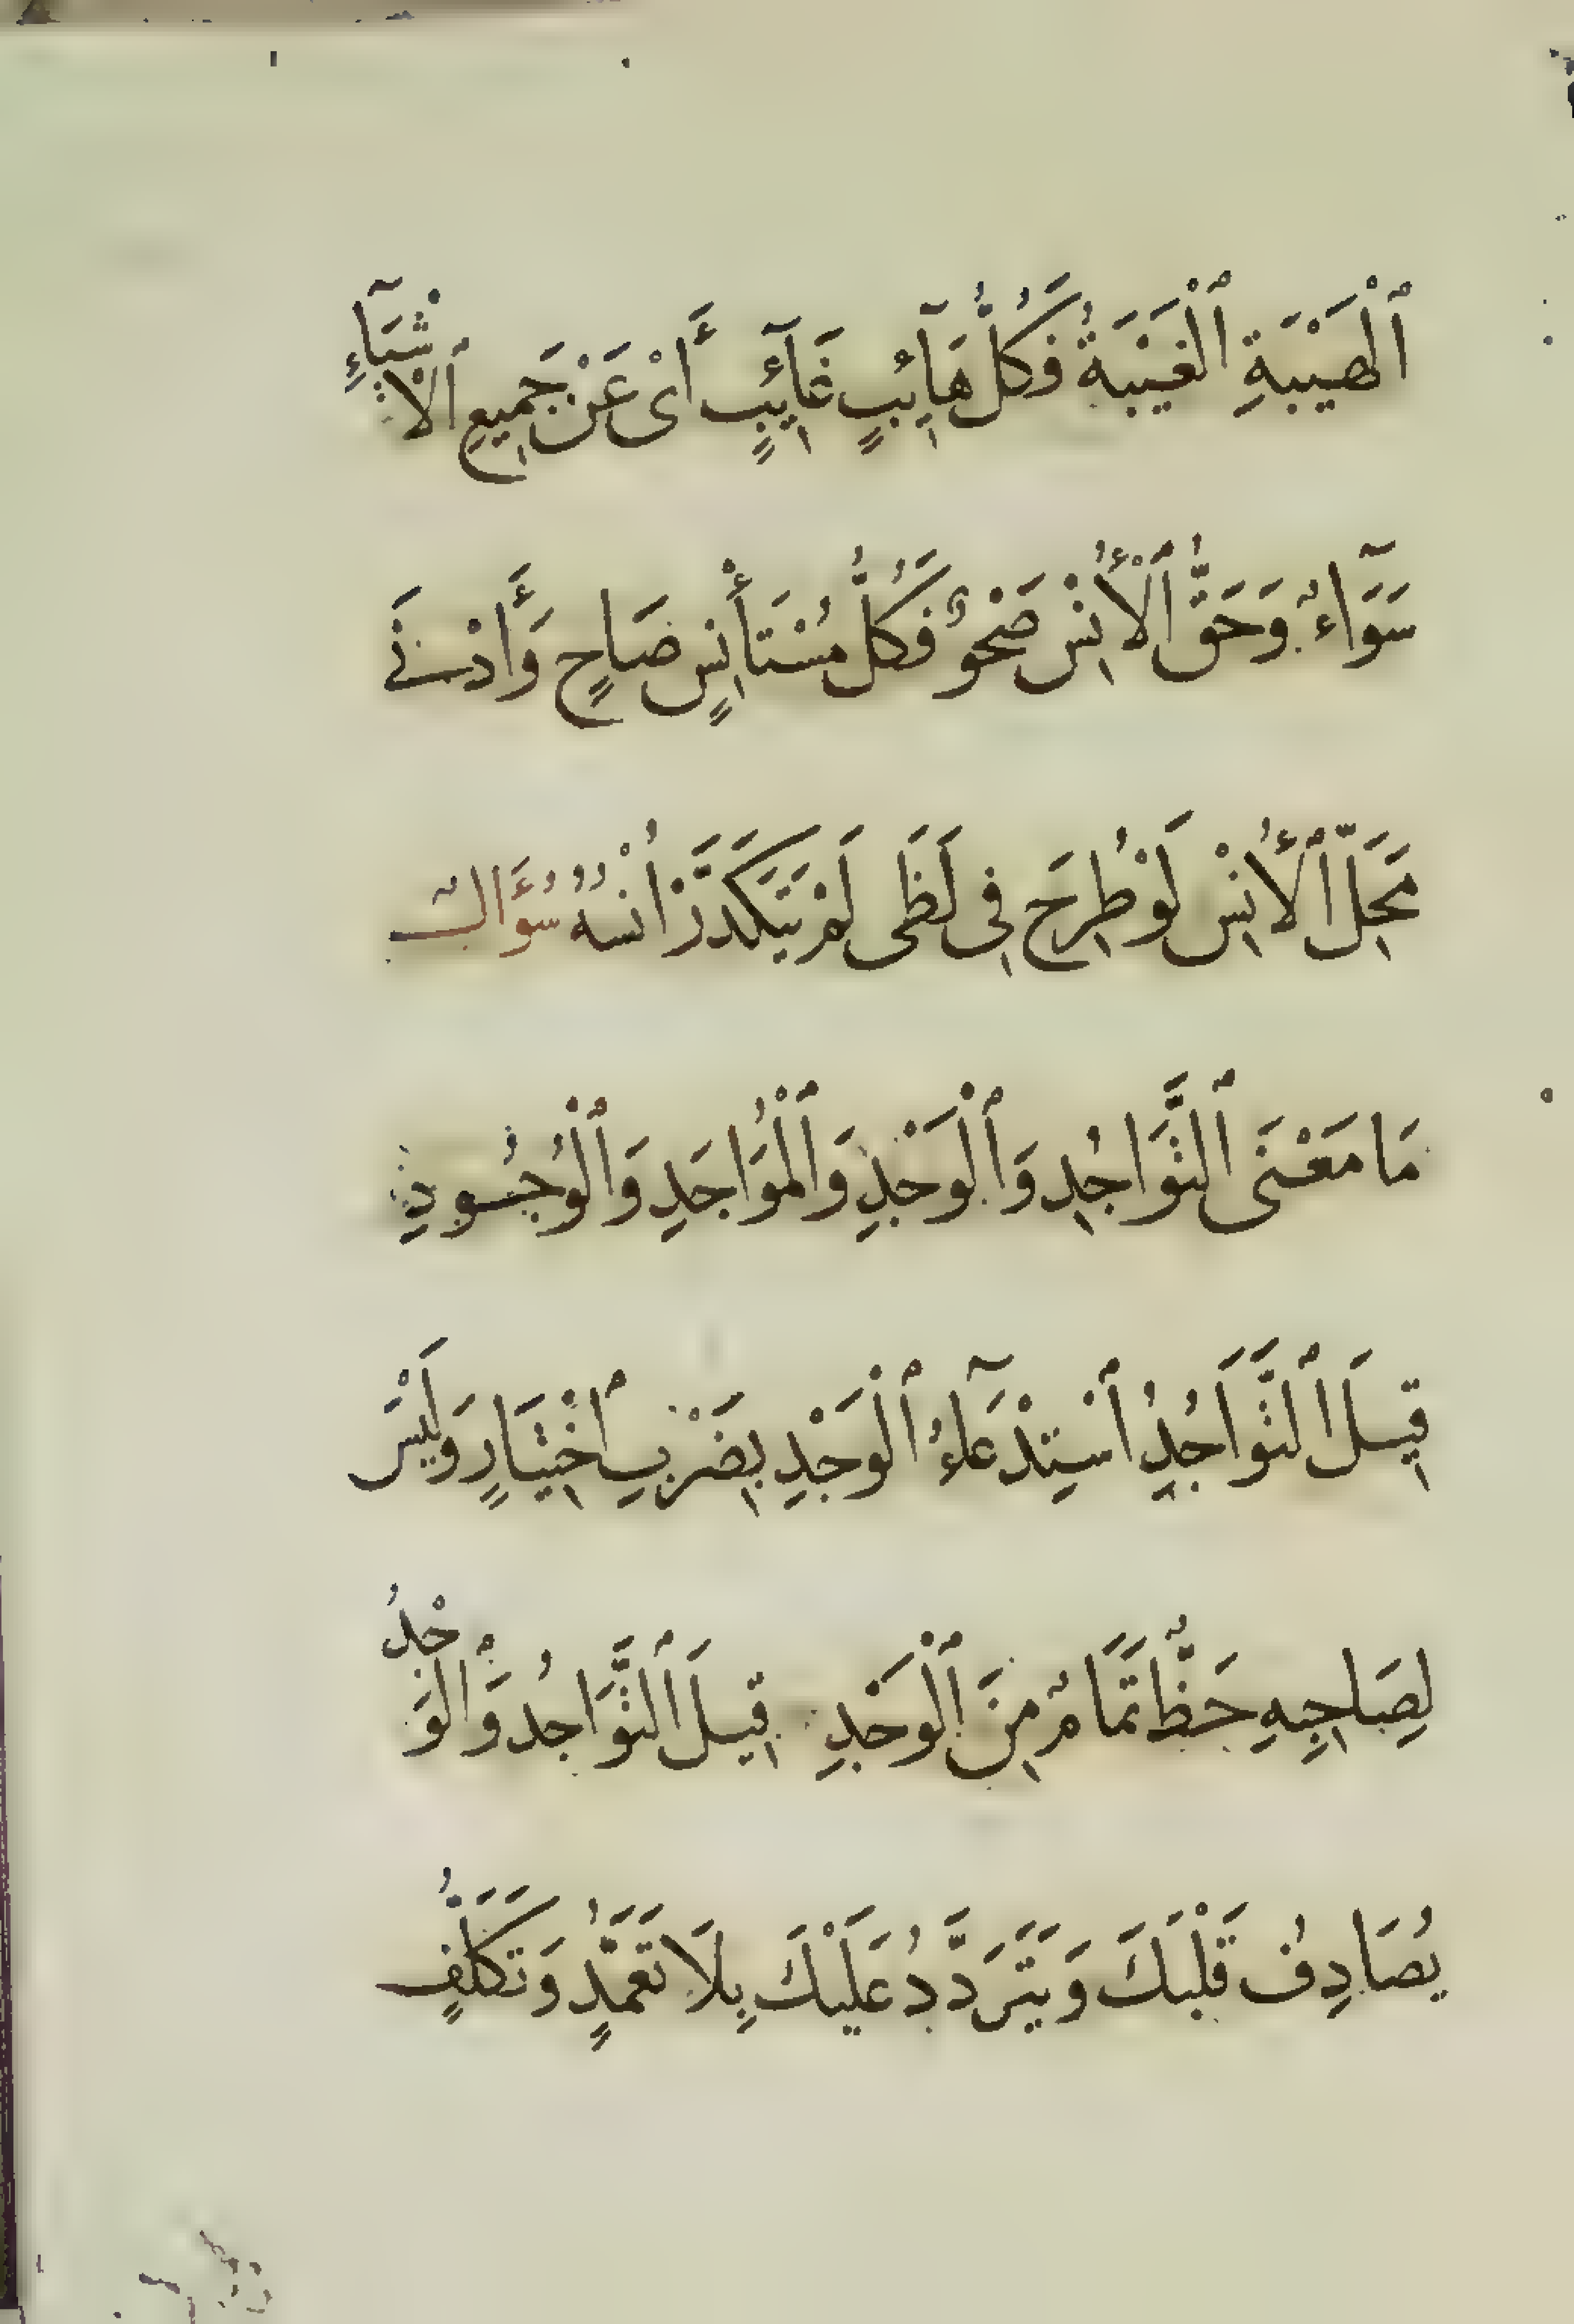 ٱلْهَيْبَةِ ٱلْغَيْبَةُ فَكُلُّ هَآئِبٍ غَآئِبٍ أَىْ عَنْ جَمِيعِ ٱلْأَشْيَآءِ
سَوَآءٌ وَحَقُّ ٱلْأُنْسِ صَحْوٌ فَكُلُّ مُسْتَأْنِسٍ صَاحٍ وَأَدْنَى
مَحَلِّ ٱلْأُنْسِ لَوْ طُرِحَ فِى لَظَى لَمْ يَتَكَدَّرْ اُنْسُهُ سُؤَالٌ
مَا مَعْنَى ٱلتَّوَاجُدِ وَٱلْوَجْدِ وَٱلْمُوَاجَدِ وَٱلْوُجُودِ
قِيلَ ٱلتَّوَاجُدُ ٱسْتِدْعَآءُ ٱلْوَجْدِ بِضَرْبِ ٱخْتِيَارٍ وَلَيْسَ
لِصَاحِبِهِ حَظٌّ تَمَامٌ مِنَ ٱلْوَجْدِ قِيلَ ٱلتَّوَاجُدُ وَٱلْوَجْدُ
يُصَادِفُ قَلْبَكَ وَيَتَرَدَّدُ عَلَيْكَ بِلَا تَعَمُّدٍ وَتَكَلُّفٍ